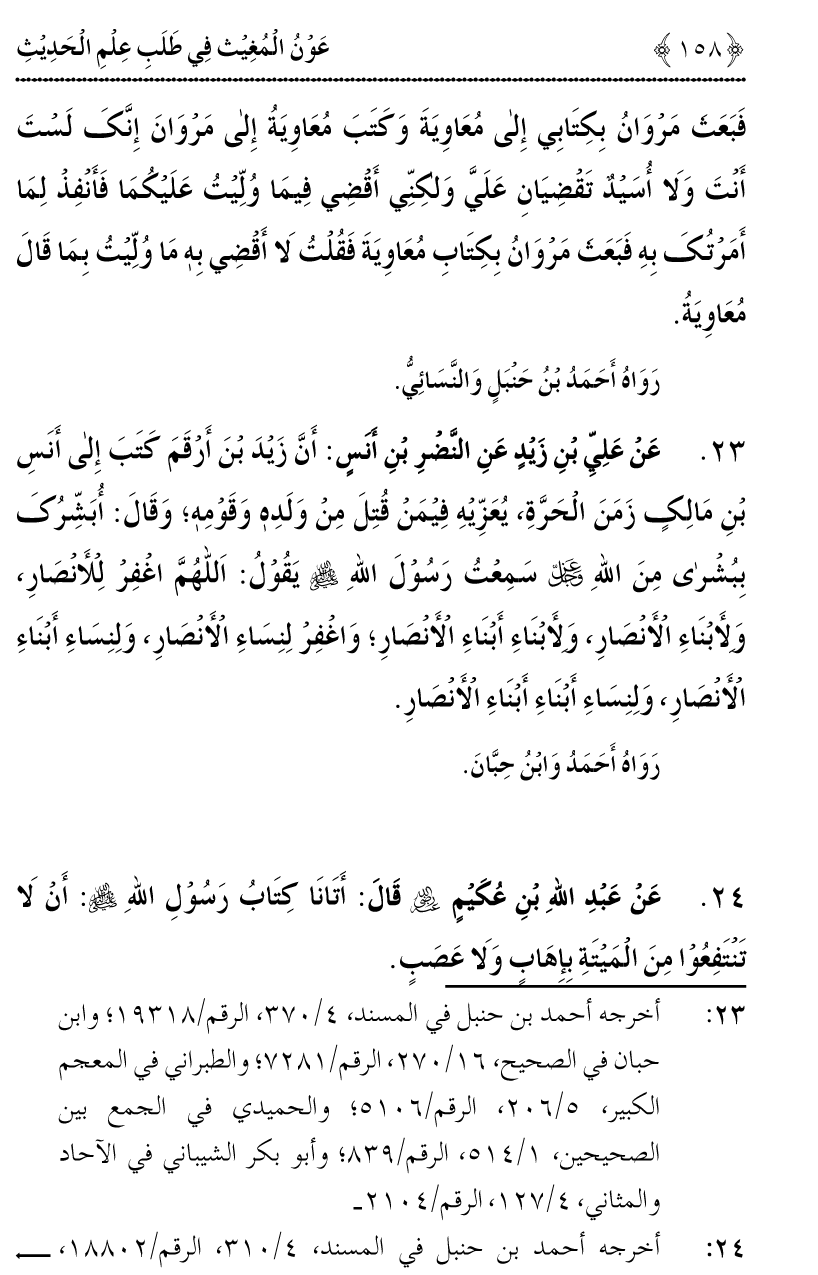 ﴿١٥٨﴾ عَوْنُ الْمُغِيْث فِي طَلَبِ عِلْمِ الْحَدِيْثِ
فَبَعَثَ مَرْوَانُ بِكِتَابِي إِلٰى مُعَاوِيَةَ وَكَتَبَ مُعَاوِيَةُ إِلٰى مَرْوَانَ إِنَّکَ لَسْتَ
أَنْتَ وَلَا أُسَيْدٌ تَقْضِيَانِ عَلَيَّ وَلٰكِنِّي أَقْضِي فِيمَا وُلِّيْتُ عَلَيْكُمَا فَأَنْفِذْ لِمَا
أَمَرْتُکَ بِهِ فَبَعَثَ مَرْوَانُ بِكِتَابِ مُعَاوِيَةَ فَقُلْتُ لَا أَقْضِي بِهٖ مَا وُلِّيْتُ بِمَا قَالَ
مُعَاوِيَةُ.
رَوَاهُ أَحْمَدُ بْنُ حَنْبَلٍ وَالنَّسَائِيُّ.
٢٣. عَنْ عَلِيِّ بْنِ زَيْدٍ عَنِ النَّضْرِ بْنِ أَنَسٍ: أَنَّ زَيْدَ بْنَ أَرْقَمَ كَتَبَ إِلٰى أَنَسِ
بْنِ مَالِكٍ زَمَنَ الْحَرَّةِ، يُعَزِّيْهِ فِيْمَنْ قُتِلَ مِنْ وَلَدِهٖ وَقَوْمِهٖ؛ وَقَالَ: أُبَشِّرُکَ
بِبُشْرٰى مِنَ اللهِ عزوجل سَمِعْتُ رَسُوْلَ اللهِ ﷺ يَقُوْلُ: اَللّٰهُمَّ اغْفِرْ لِلْأَنْصَارِ،
وَلِأَبْنَاءِ الْأَنْصَارِ، وَلِأَبْنَاءِ أَبْنَاءِ الْأَنْصَارِ؛ وَاغْفِرْ لِنِسَاءِ الْأَنْصَارِ، وَلِنِسَاءِ أَبْنَاءِ
الْأَنْصَارِ، وَلِنِسَاءِ أَبْنَاءِ أَبْنَاءِ الْأَنْصَارِ.
رَوَاهُ أَحْمَدُ وَابْنُ حِبَّانَ.
٢٤. عَنْ عَبْدِ اللهِ بْنِ عُكَيْمٍ رضي الله عنه قَالَ: أَتَانَا كِتَابُ رَسُوْلِ اللهِ ﷺ: أَنْ لَا
تَنْتَفِعُوْا مِنَ الْمَيْتَةِ بِإِهَابٍ وَلَا عَصَبٍ.
٢٣: أخرجه أحمد بن حنبل في المسند، ٤/٣٧٠، الرقم/١٩٣١٨؛ وابن
حبان في الصحيح، ١٦/٢٧٠، الرقم/٧٢٨١؛ والطبراني في المعجم
الكبير، ٥/٢٠٦، الرقم/٥١٠٦؛ والحميدي في الجمع بين
الصحيحين، ١/٥١٤، الرقم/٨٣٩؛ وأبو بكر الشيباني في الآحاد
والمثاني، ٤/١٢٧، الرقم/٢١٠٤ـ
٢٤: أخرجه أحمد بن حنبل في المسند، ٤/٣١٠، الرقم/١٨٨٠٢،